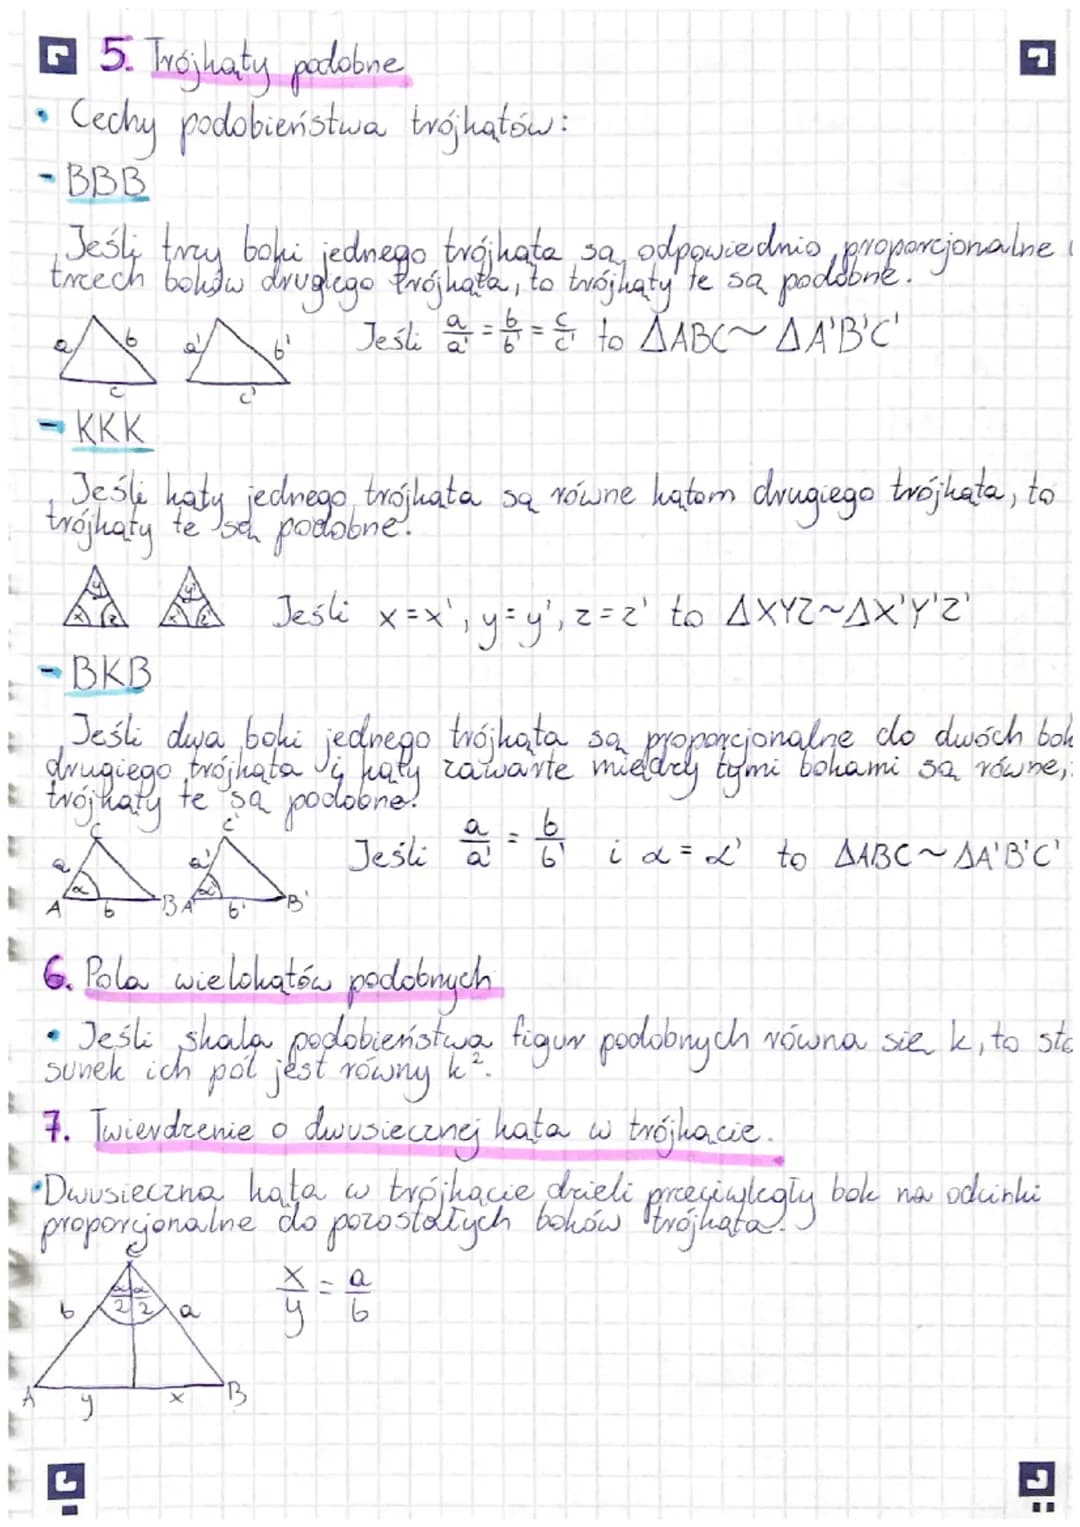 5. Trójkąty podobne
• Cechy podobieństwa trójkątów:
- BBB
Jeśli trzy boki jednego trójkąta są odpowiednio proporcjonalne
trzech boków drugiego trójkąta, to trójkąty te są podobne.
a b c a' b' c' Jeśli a/a' = b/b' = c/c' to ΔABC ~ ΔA'B'C'
- KKK
Jeśli kąty jednego trójkąta są równe kątom drugiego trójkąta, to
trójkąty te są podobne.
x y z x' y' z' Jeśli x=x', y=y', z=z' to ΔXYZ~ΔX'Y'Z'
- BKB
Jeśli dwa boki jednego trójkąta są proporcjonalne do dwóch bok
drugiego trójkąta i kąty zawarte między tymi bokami są równe,
trójkąty te są podobne.
C a α A b B C' a' α' A' b' B' Jeśli a/a' = b/b' i α = α' to ΔABC ~ ΔA'B'C'
6. Pola wielokątów podobnych
• Jeśli skala podobieństwa figur podobnych równa się k, to sto
sunek ich pól jest równy k².
7. Twierdzenie o dwusiecznej kąta w trójkącie.
• Dwusieczna kąta w trójkącie dzieli przeciwległy bok na odcinki
proporcjonalne do pozostałych boków trójkąta.
C α/2 α/2 b a A y x B
x/y = a/b